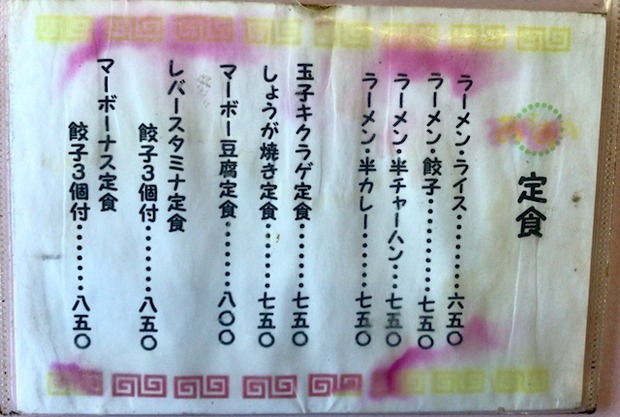 定食
ラーメン・ライス……六五〇
ラーメン・餃子……七五〇
ラーメン・半チャーハン……七五〇
ラーメン・半カレー……七五〇
玉子キクラゲ定食……七五〇
しょうが焼き定食……七五〇
マーボー豆腐定食……八〇〇
レバースタミナ定食
餃子3個付……八五〇
マーボーナス定食
餃子3個付……八五〇